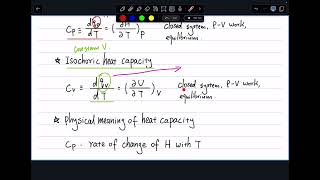 Cp ≡ dqp/dT = (∂H/∂T)P closed system, P-V work, equilibrium.
constant V.
* Isochoric heat capacity
Cv ≡ dqv/dT = (∂U/∂T)V closed system, P-V work, equilibrium.
* Physical meaning of heat capacity
Cp. rate of change of H with T